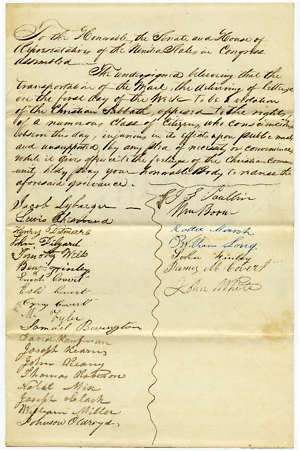 To the Honorable, the Senate and House of
Representatives of the United States in Congress
Assembled
The undersigned believing that the
transportation of the Mail, the delivering of letters
on the first day of the Week to be a violation
of the Christian Sabbath opposed to the rights
of a numerous class of Citizens who
upon the day, injurious in its effects upon public morals
and unsupported by any plea of necessity or convenience
while it gives offence to the feelings of the Christian Commu
nity, they pray your Honorable Body to redress the
aforesaid grievance.
Jacob Lyberger
Lewis
John Dilyard
Timothy Wells
Benj.
Enoch Covert
Covert
Covert
M Tyler
Samuel Bonington
David Kaufman
Joseph Kearns
John Keany
Thomas Robeson
Nobel Mix
Joseph Clark
William Miller
Johnson Oldroyd
Poullin
Wm Boon
March
William Long
John Finley
James M Covert
John White